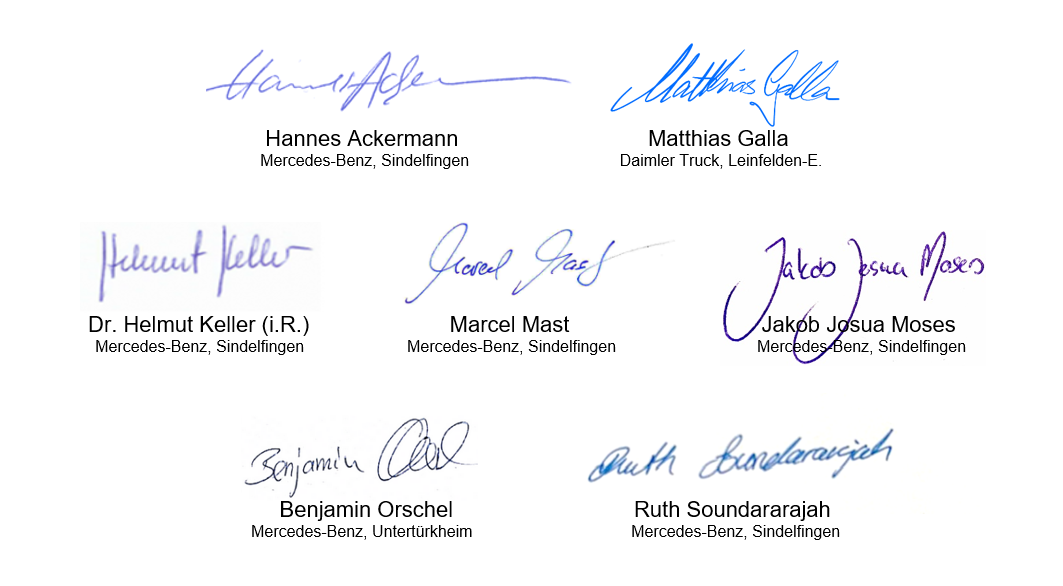 Hannes Acker
Matthias Galla
Hannes Ackermann
Matthias Galla
Mercedes-Benz, Sindelfingen
Daimler Truck, Leinfelden-E.
Helmut Keller
Marcel Mast
Jakob Josua Moses
Dr. Helmut Keller (i.R.)
Marcel Mast
Jakob Josua Moses
Mercedes-Benz, Sindelfingen
Mercedes-Benz, Sindelfingen
Mercedes-Benz, Sindelfingen
Benjamin
Ruth Soundararajah
Benjamin Orschel
Ruth Soundararajah
Mercedes-Benz, Untertürkheim
Mercedes-Benz, Sindelfingen